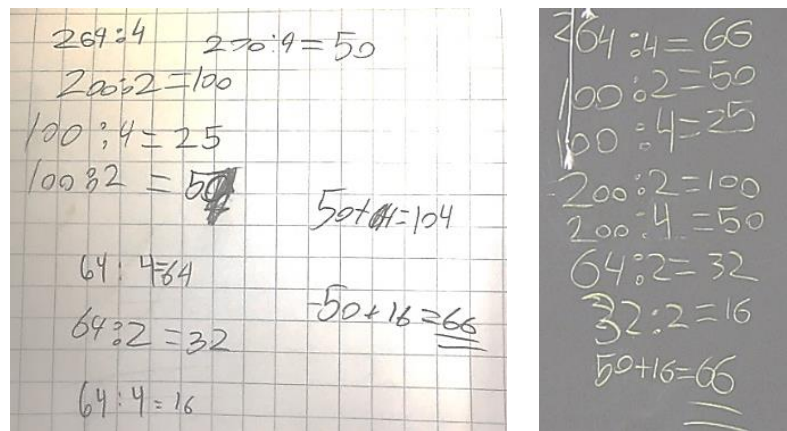 264:4 200:4=50
200:2=100
100:4=25
100:2=50
50+ =104
64:4=64
50+16=66
64:2=32
64:4=16
264:4=66
100:2=50
100:4=25
200:2=100
200:4=50
64:2=32
32:2=16
50+16=66